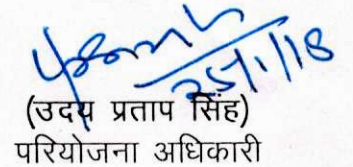 25/1/18
(उदय प्रताप सिंह)
परियोजना अधिकारी